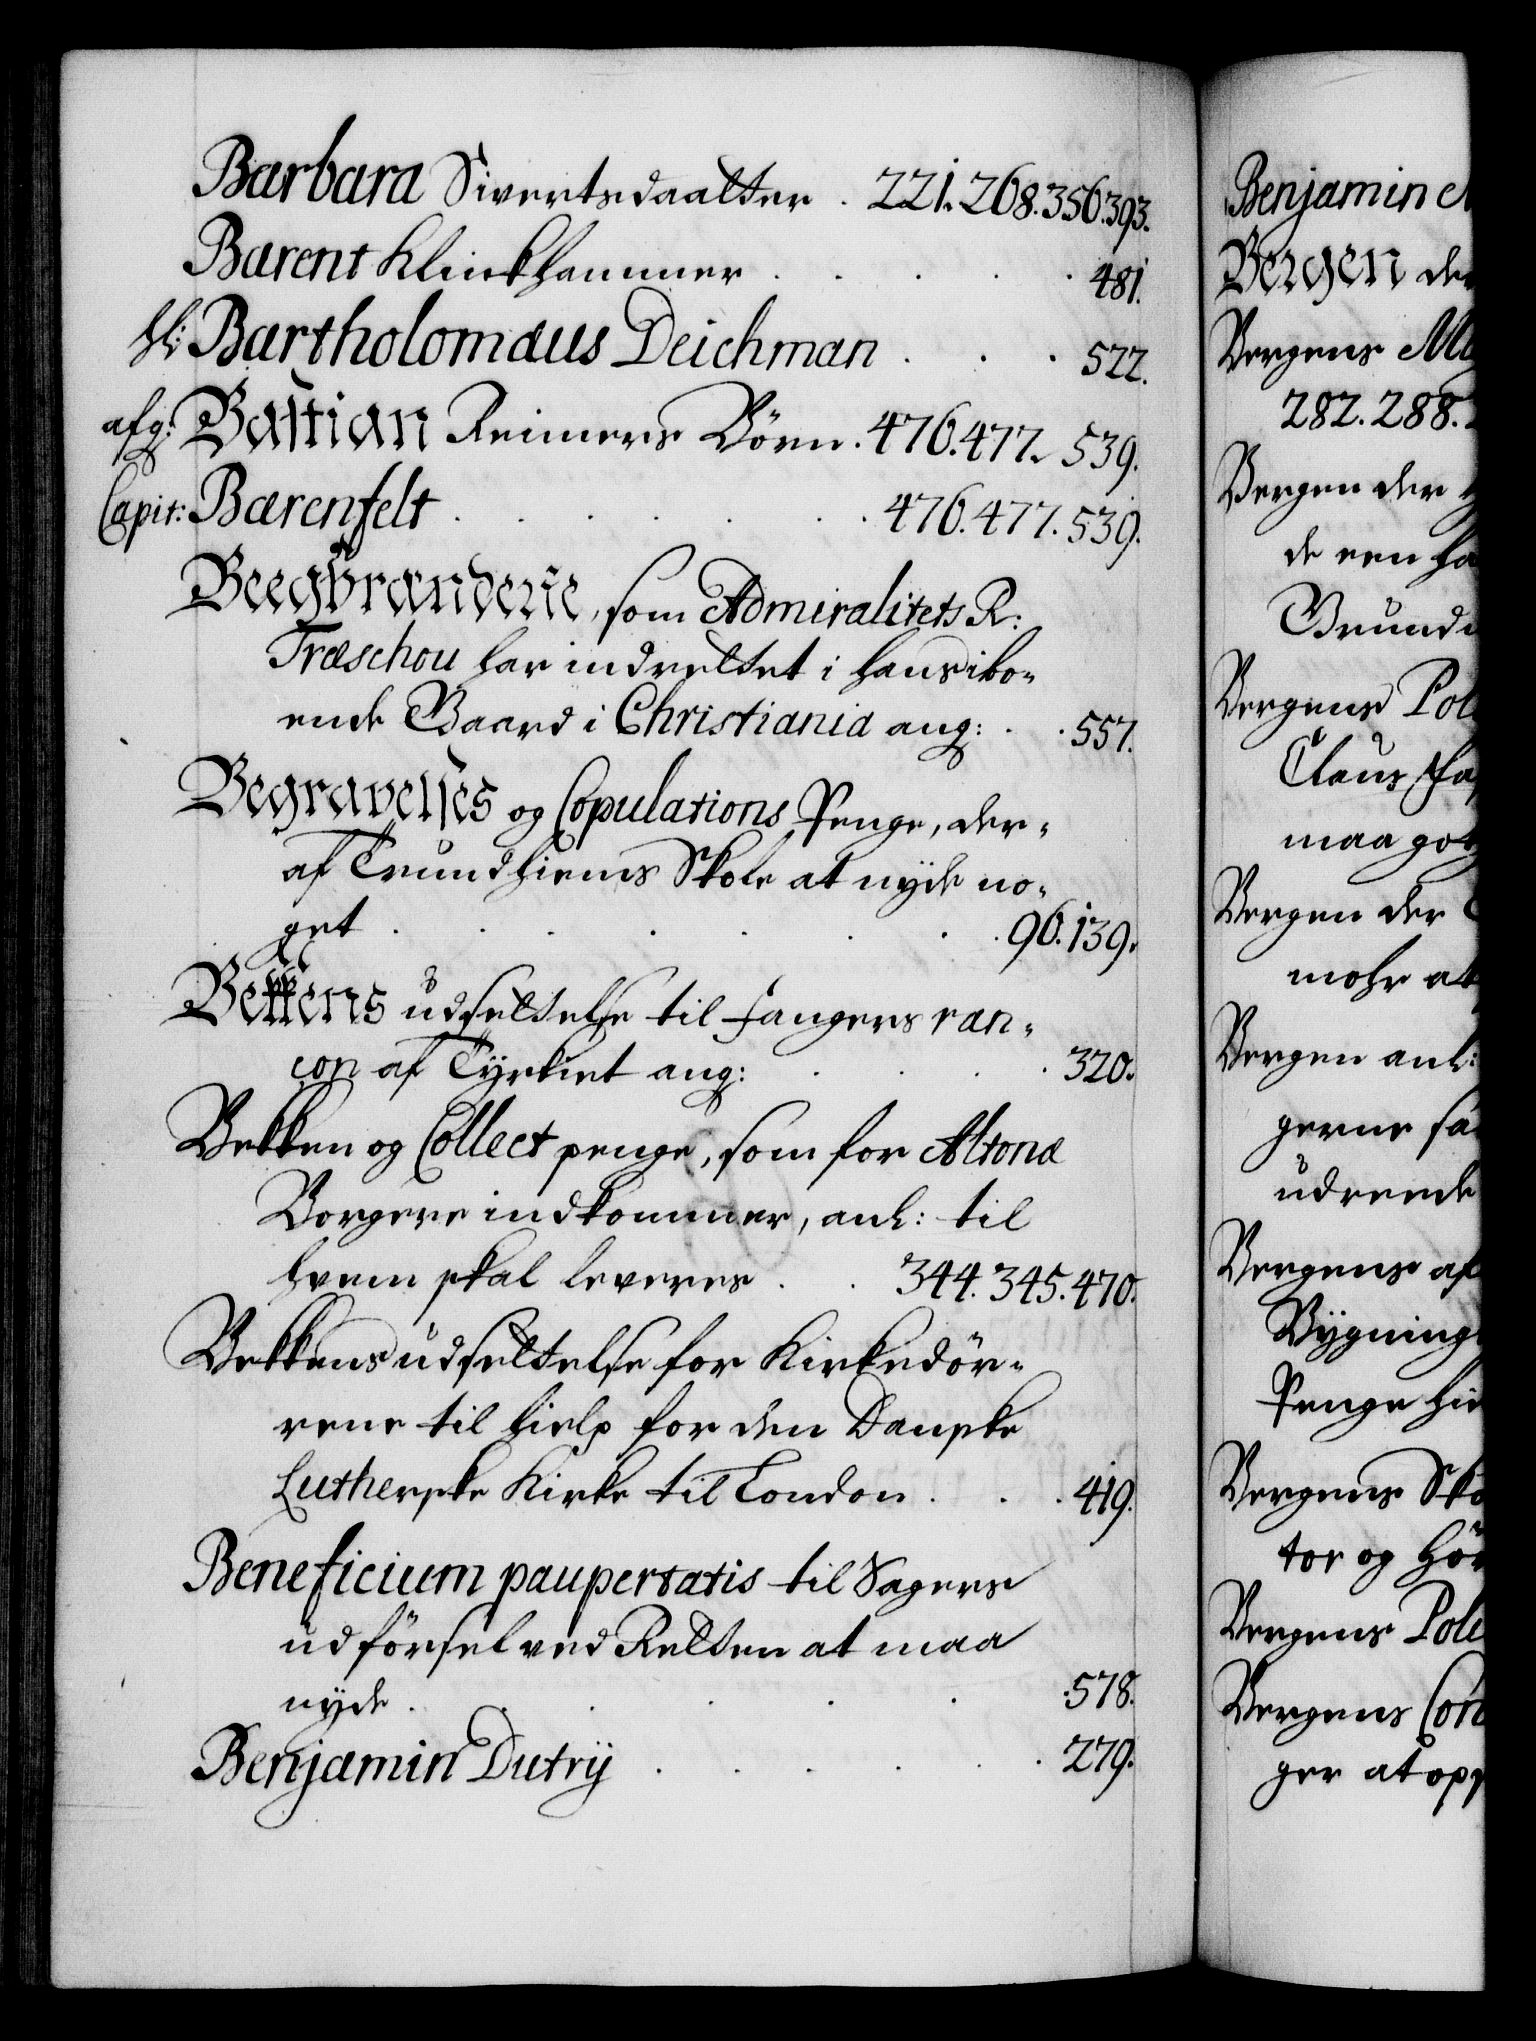 Barbara Sivertsdaatter . 221. 268. 356. 393.
Barent Klinckhammer . . . . . 481.
H: Bartholomæus Deichman . . . 522.
afg: Bastian Reimers Börn. 476. 477. 539.
Capit: Bærenfelt . . . . . . 476. 477. 539.
Beegbrænderie, som Admiralitets R:
Træschou har indrettet i hans ibo-
ende Gaard i Christiania ang: . . 557.
Begravelses og Copulations Penge, der-
af Trundhiems Skole at nyde no-
get . . . . . . . . 96. 139.
Bekkens udsettelse til Fangers ran-
çon af Tyrkiet ang: . . . . 320.
Bekken og Collect penge, som for Altona
Borgere indkommer, anl: til
hvem skal leveres . . 344. 345. 470.
Bekkens udsettelse for Kirkedör-
rene til hielp for den Danske
Lutherske Kirke til London . . . 419.
Beneficium paupertatis til Sagers
udförsel ved Retten at maa
nyde . . . . . . 578.
Benjamin Dutry . . . . . . 279.
Benjamin
Bergen den
Bergens
282. 288.
Bergen der
de een
Grund
Bergens Pol
Claus
maa
Bergen der
mohr at
Bergen anl:
gerne
udreede
Bergens af
Bygning
Penge hi
Bergens Sko
tor og Hör
Bergens Poli
Bergens Con
ger at opp